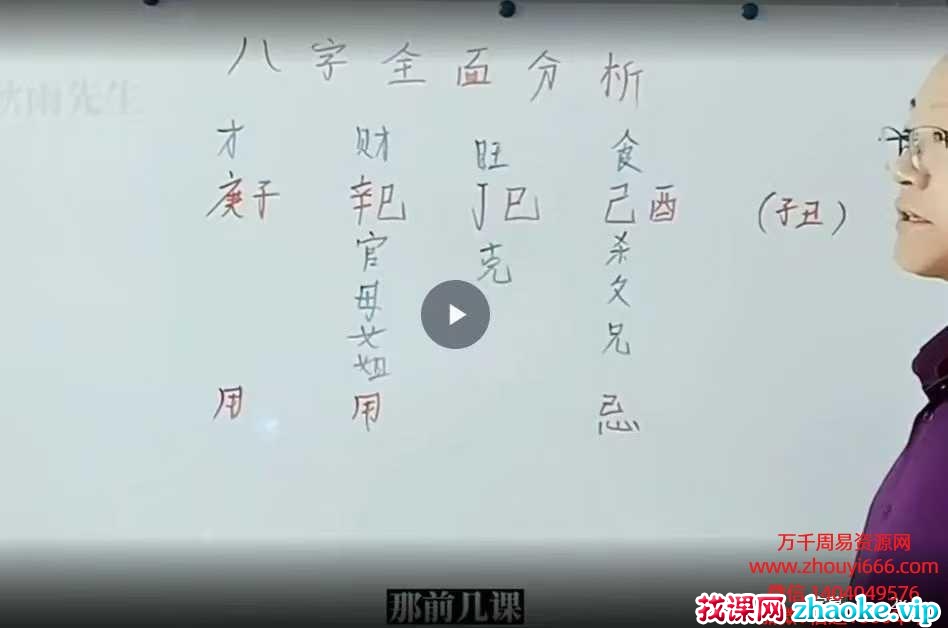 八字全面分析
秋雨先生
才 财 旺 食
庚子 辛巳 丁巳 己酉 (子丑)
官 克 杀
母 父
女 兄
姐
用 用 忌
万千周易资源网
www.zhouyi666.com
1404049576
那前几课
找课网zhaoke.vip